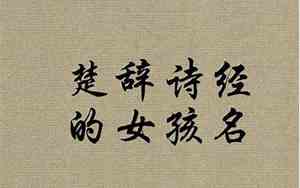 楚辞诗经
的女孩名